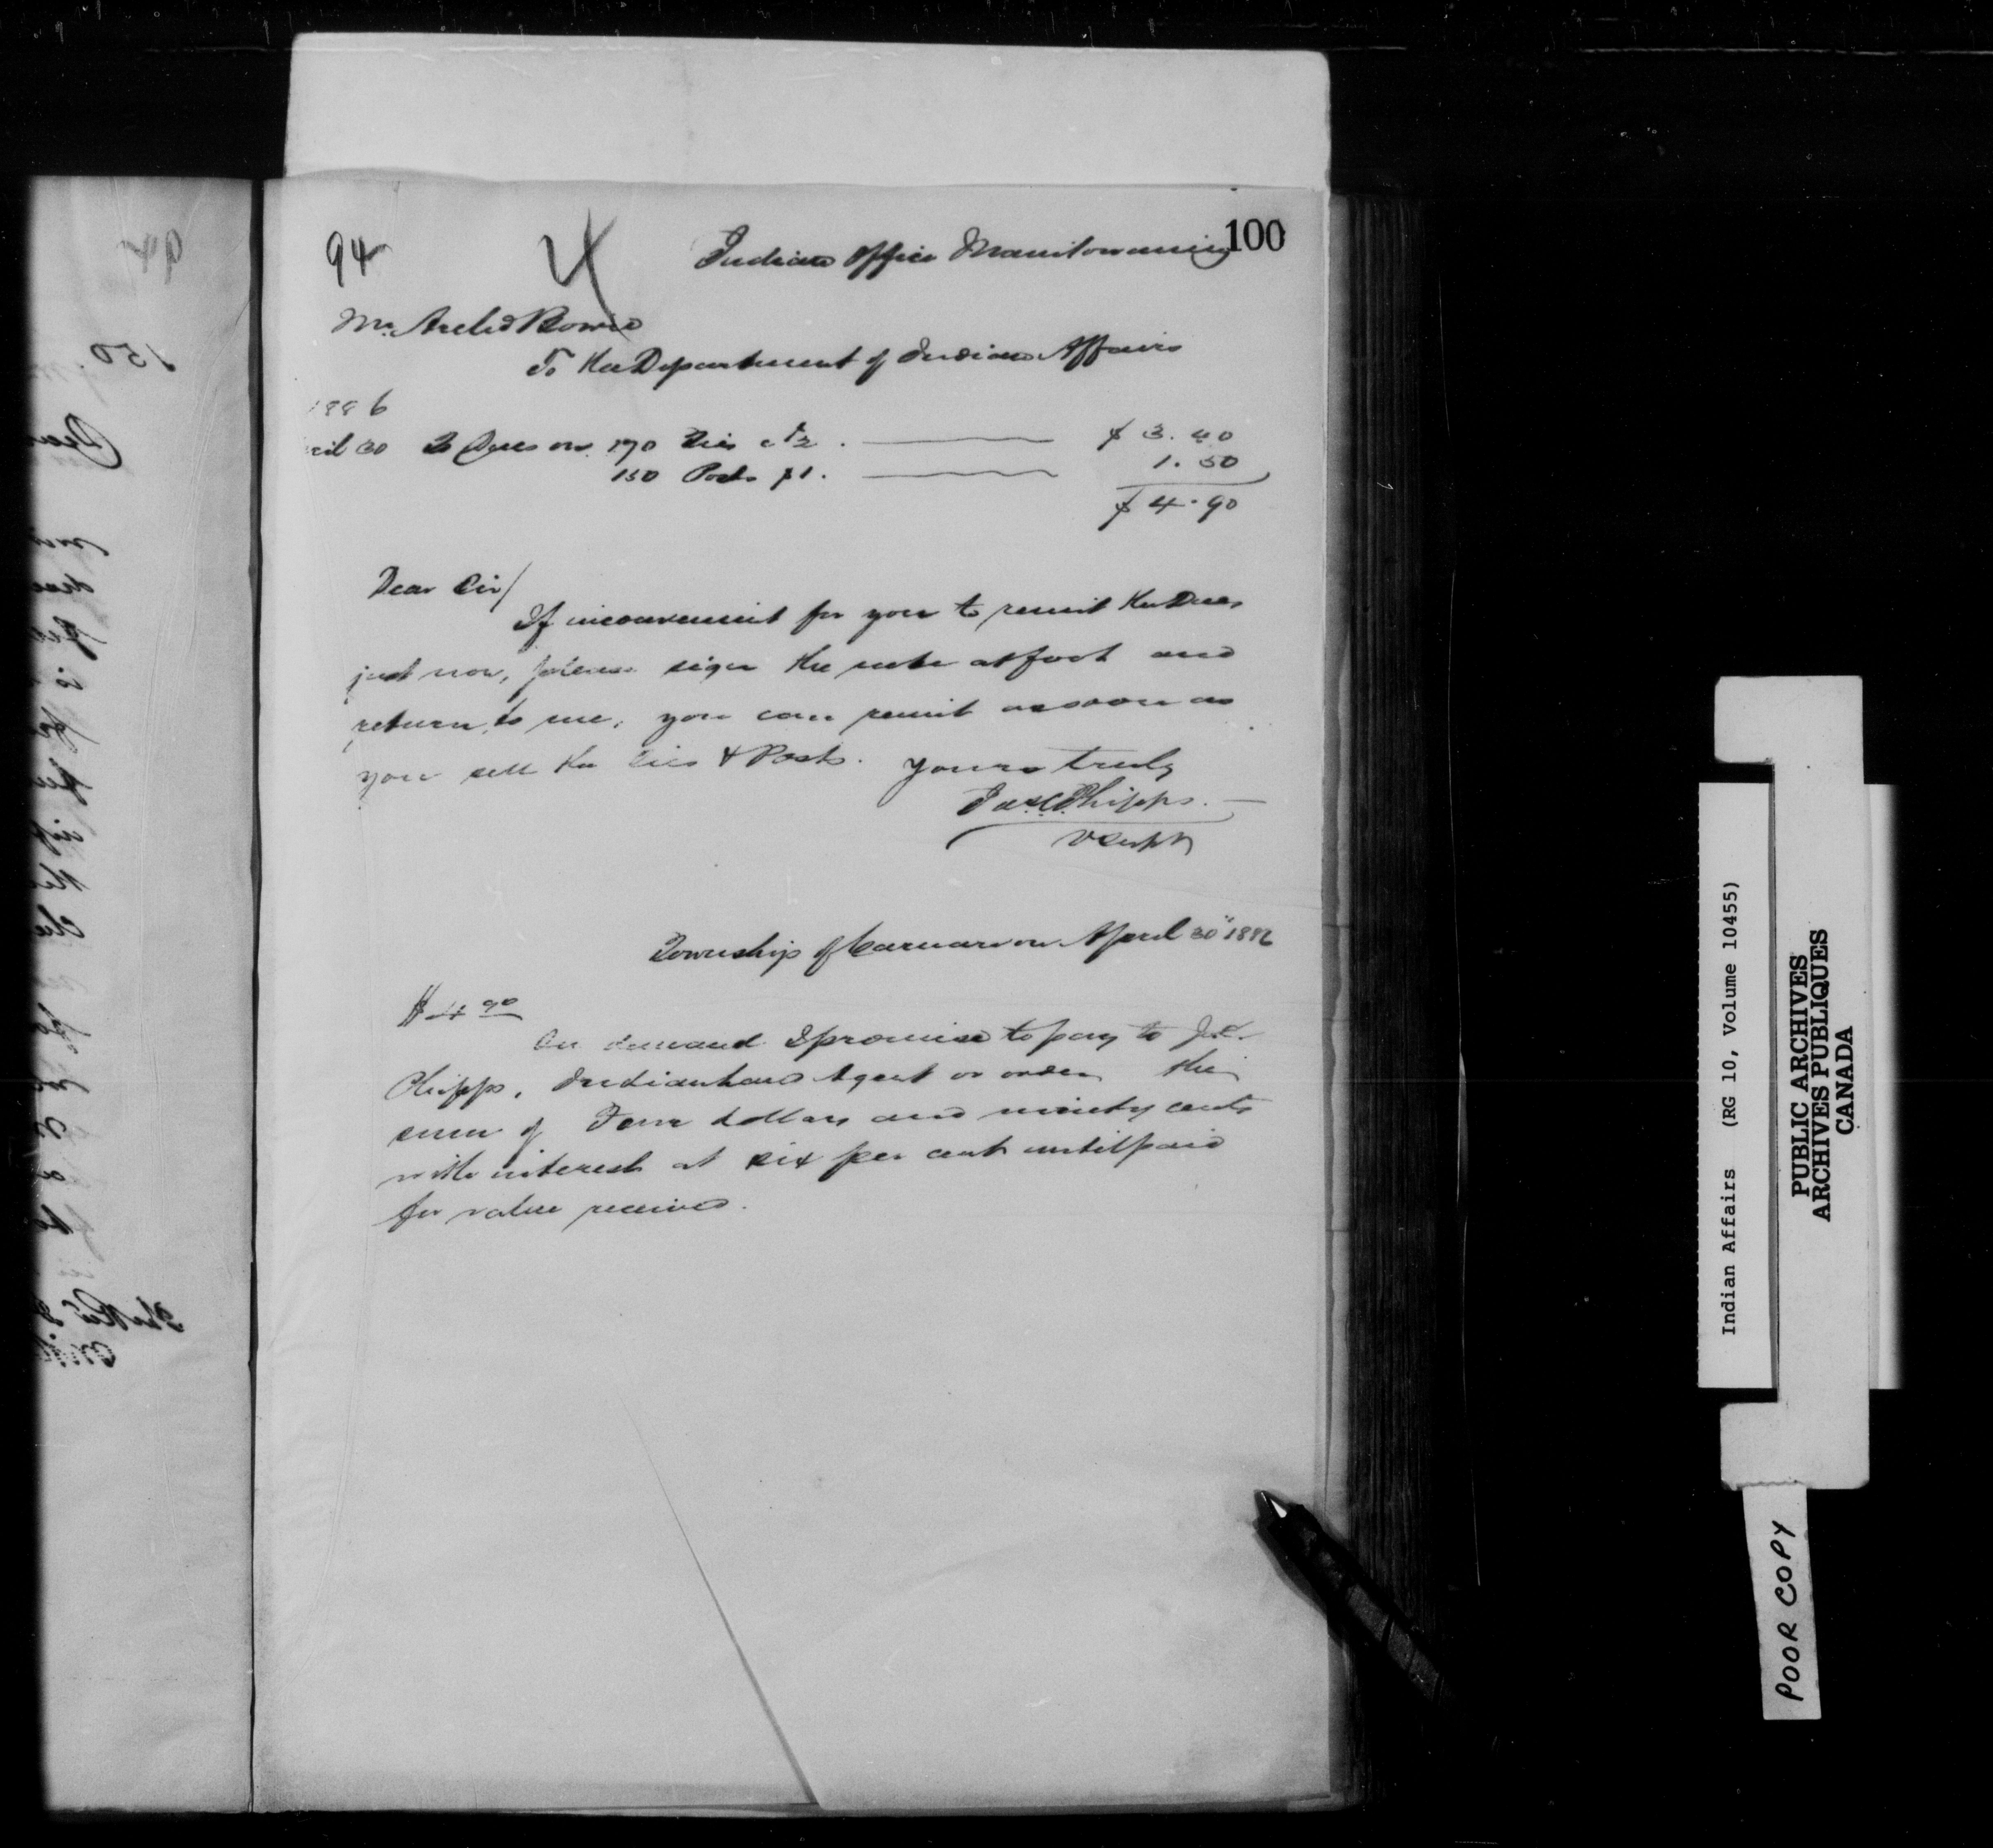 94
4
100
Indian Office Manitowaning
Mr. Archd Bowie
To the Department of Indian Affairs
1886
April 30 To Dues on 170 Ties ct 2. $ 3.40
150 Posts ct 1. 1.50
$ 4.90
Dear Sir/
If inconvenient for you to remit the Dues
just now, please sign the note at foot and
return to me, you can remit as soon as
you sell the Ties & Posts. Yours truly
Jas. C. Phipps.
V Supt
Township of Carnarvon April 30" 1886
$4 90
On demand I promise to pay to J.C.
Phipps, Indian Land Agent or order the
sum of Four dollars and ninety cents
with interest at six per cent until paid
for value received.
Indian Affairs (RG 10, Volume 10455)
PUBLIC ARCHIVES
ARCHIVES PUBLIQUES
CANADA
POOR COPY